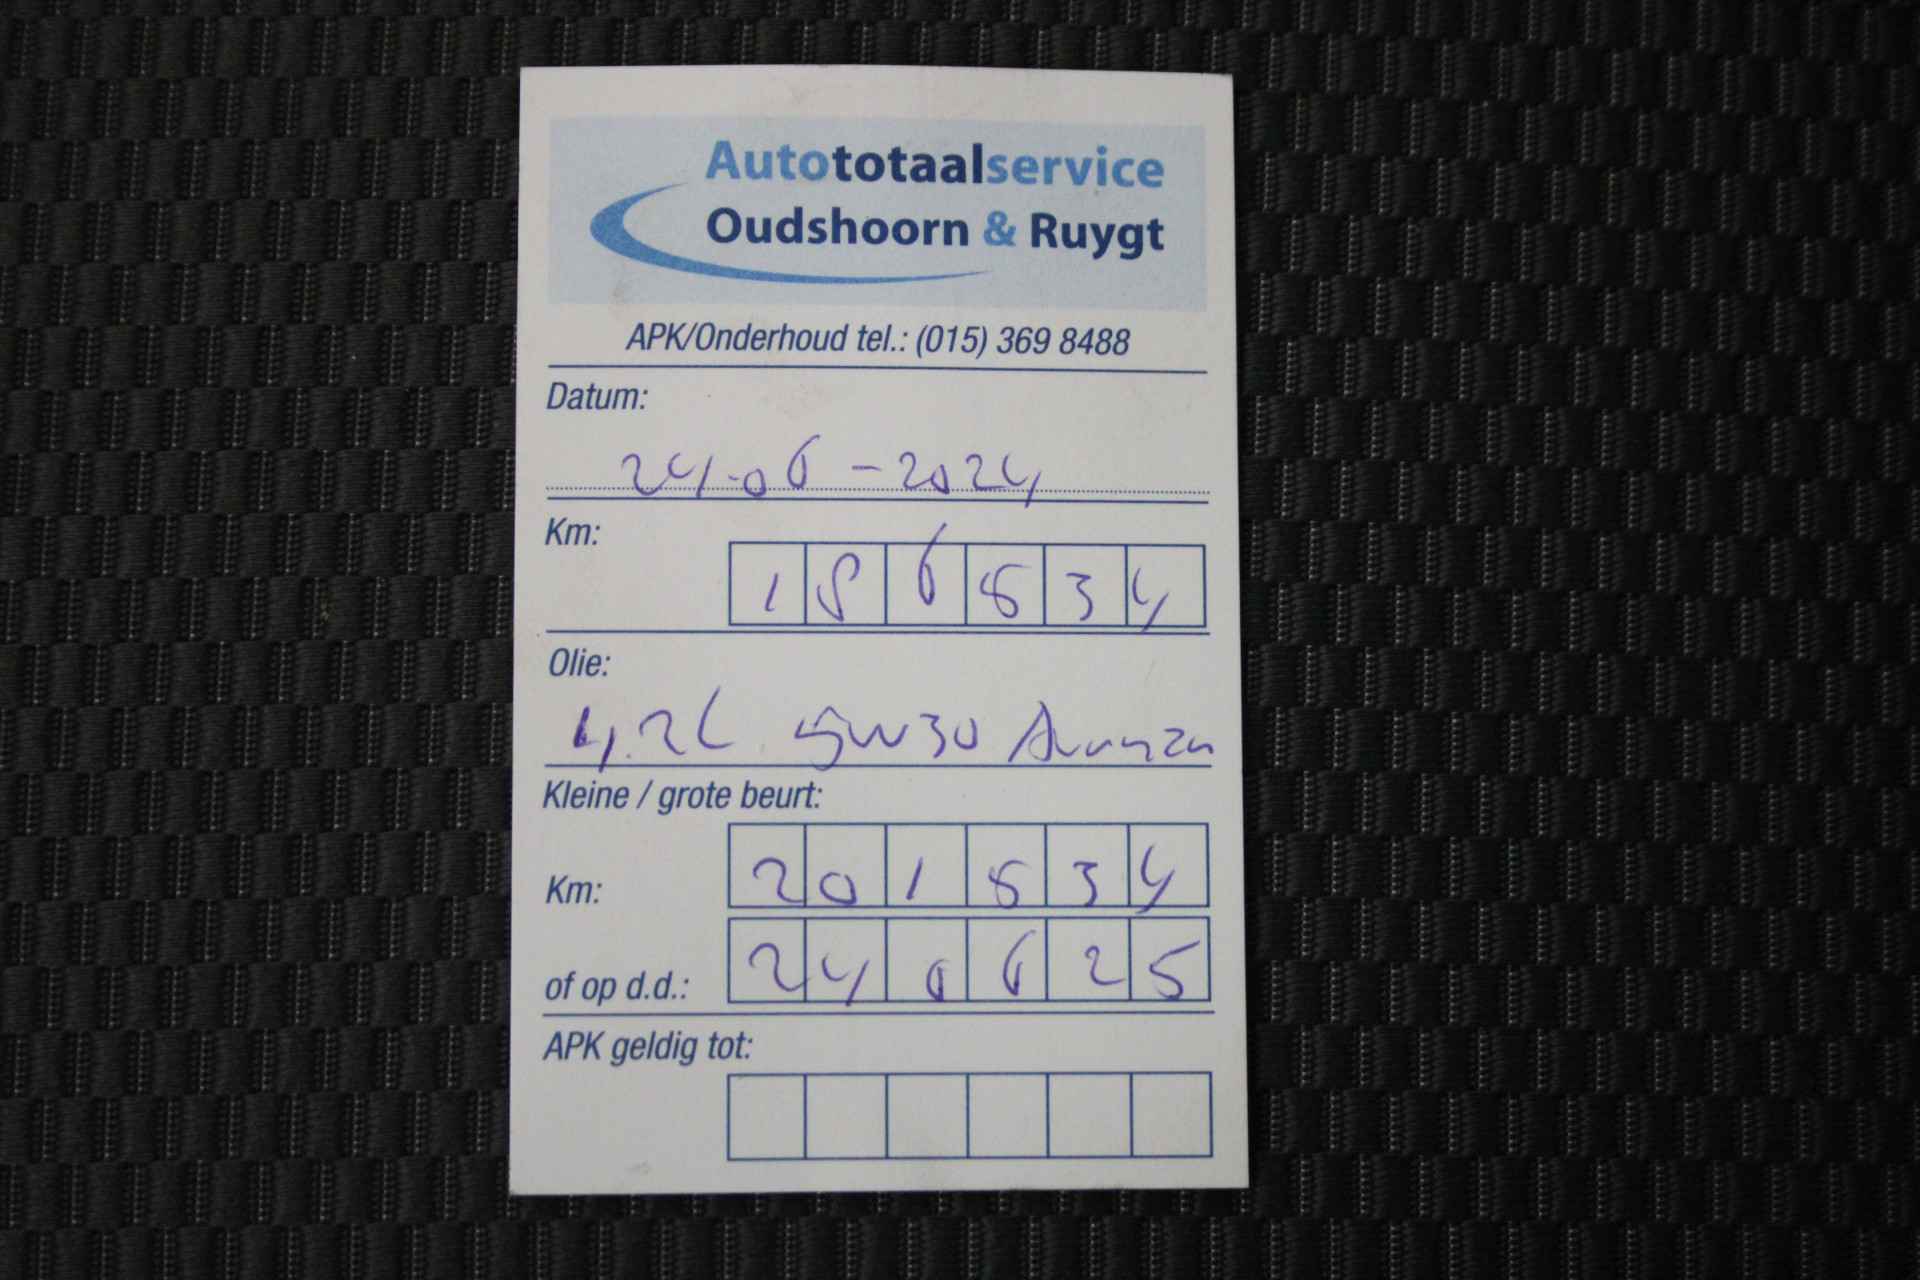 Autototaalservice
Oudshoorn & Ruygt
APK/Onderhoud tel.: (015) 369 8488
Datum:
24-06-2024
Km:
186834
Olie:
4.2L 5W30
Kleine / grote beurt:
Km: 201834
of op d.d.: 240625
APK geldig tot: